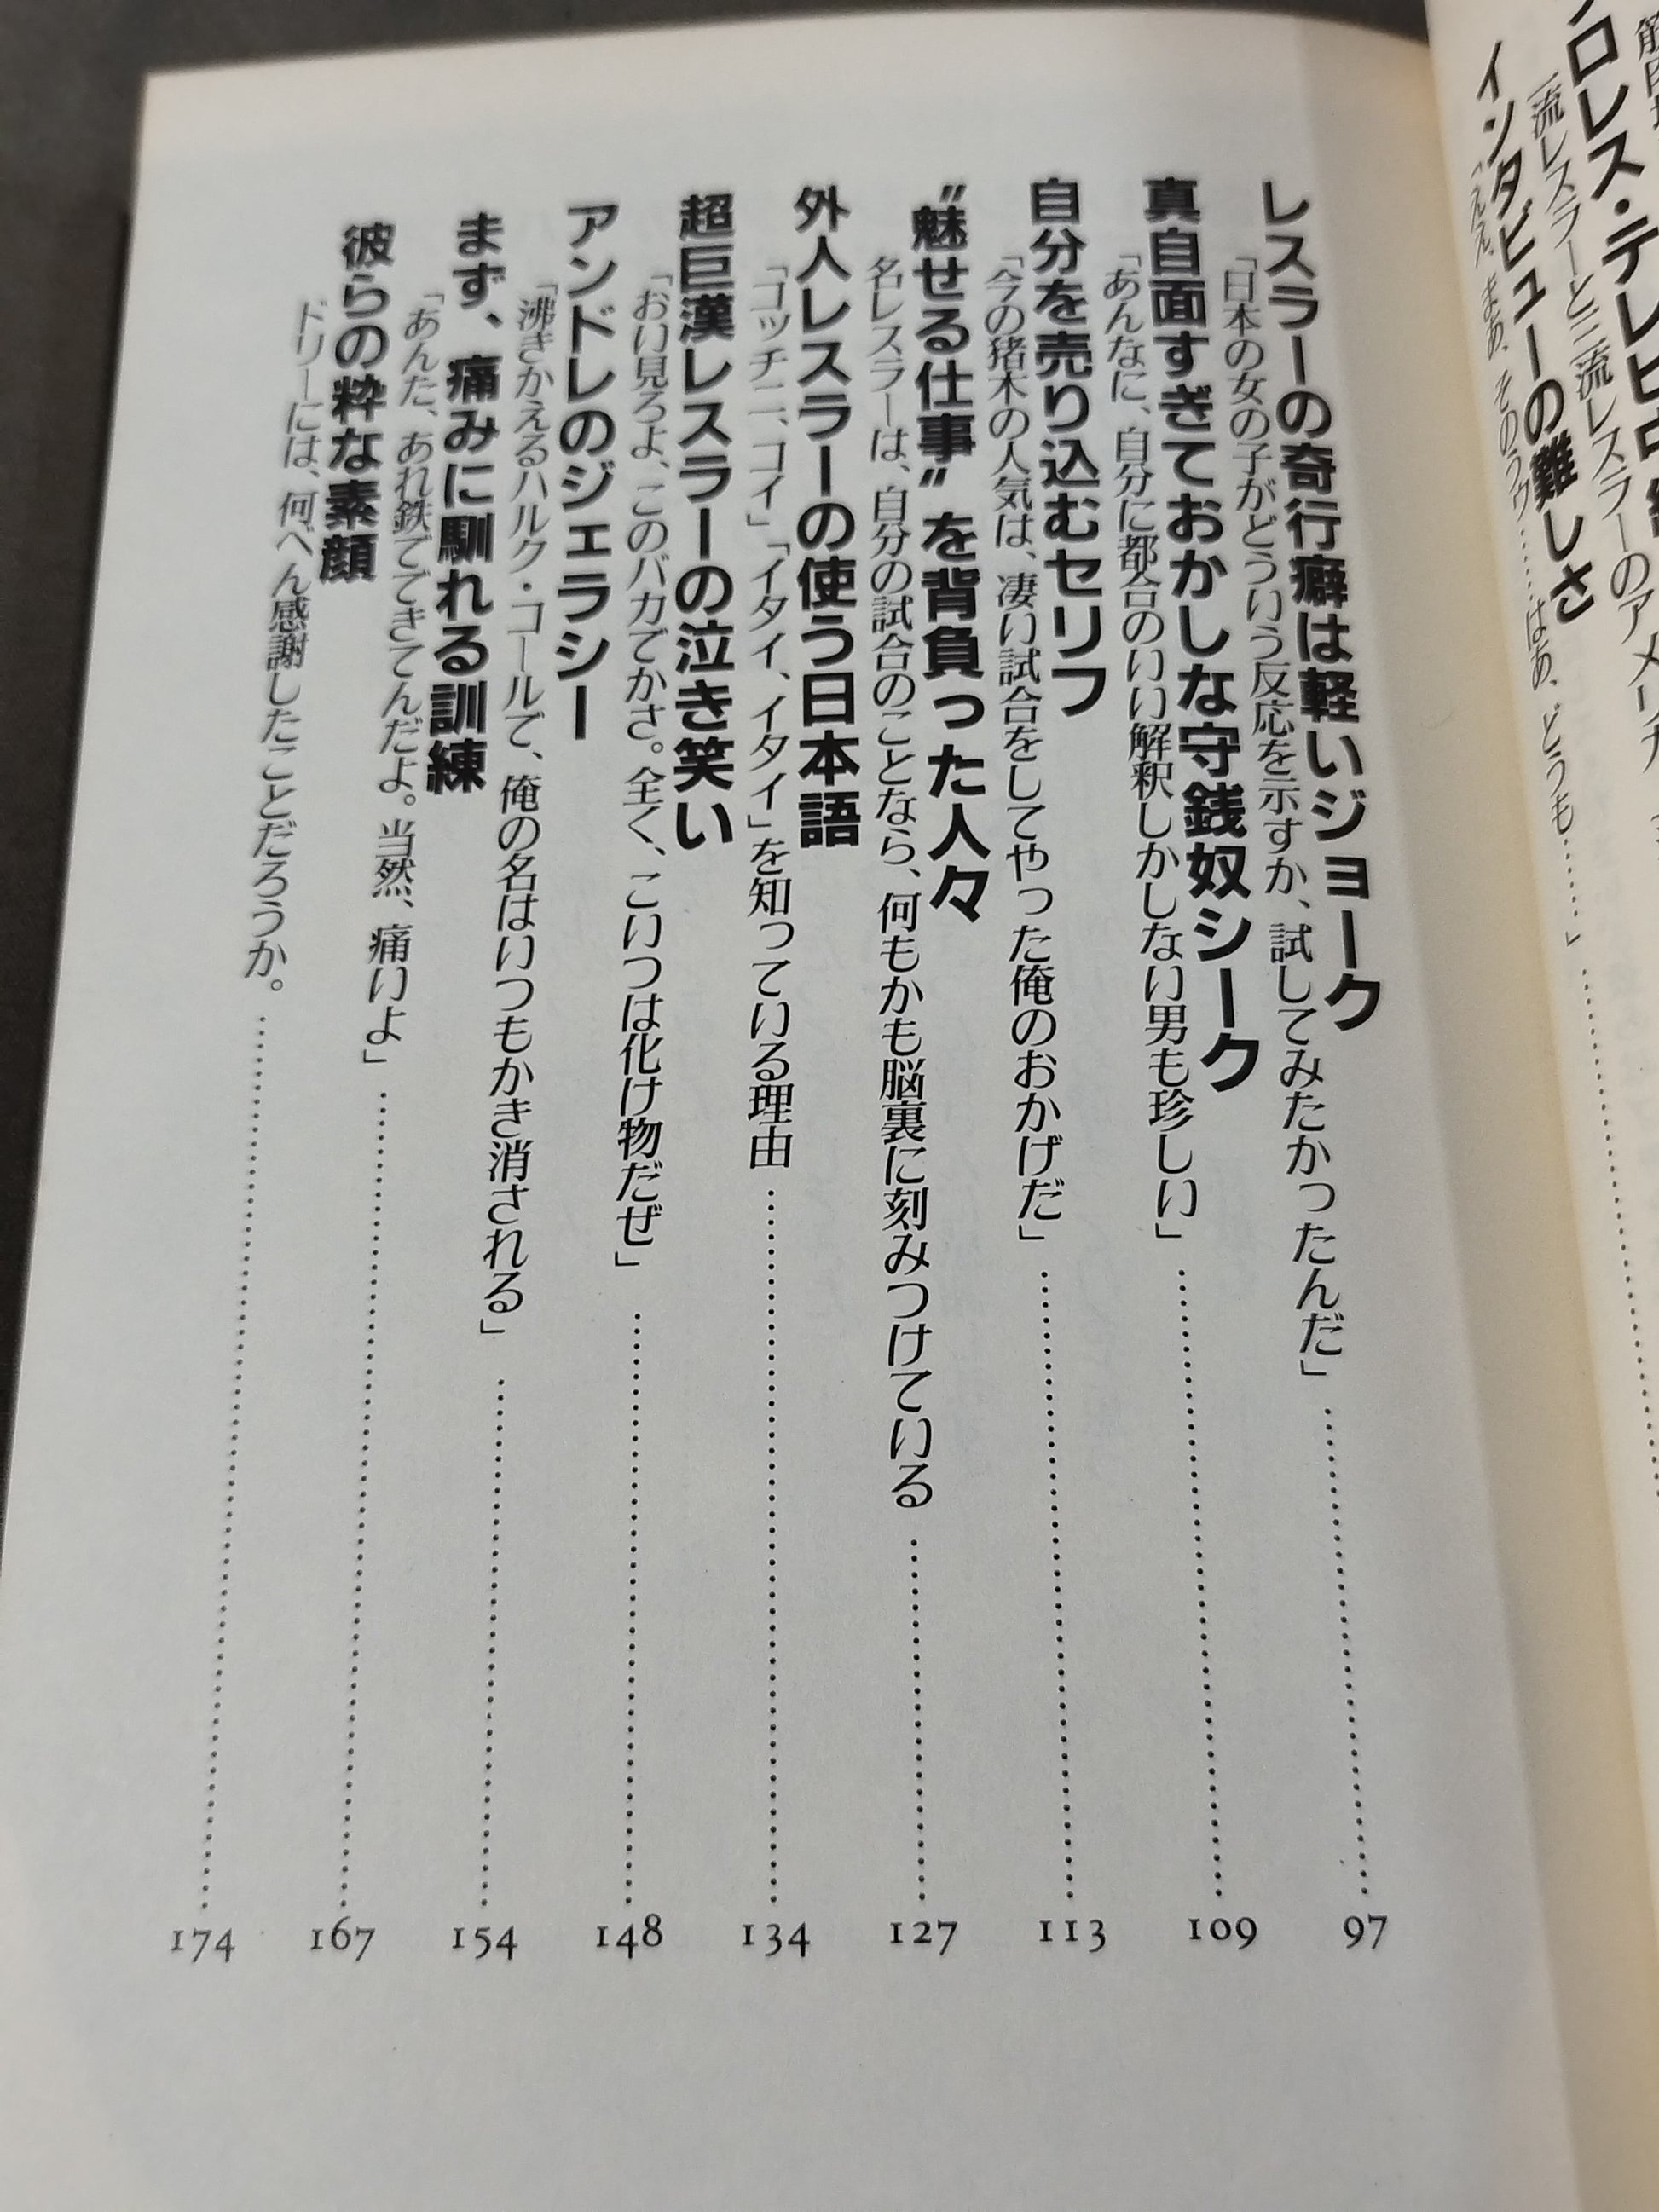 ロレス・テレビ中
一流レスラーと三流レスラーのアメリカ
インタビューの難しさ
「ええ、まあ、そのうゥ……はあ、どうも……」
レスラーの奇行癖は軽いジョーク
「日本の女の子がどういう反応を示すか、試してみたかったんだ」……97
真面目すぎておかしな守銭奴シーク
「あんなに、自分に都合のいい解釈しかしない男も珍しい」……109
自分を売り込むセリフ
「今の猪木の人気は、凄い試合をしてやった俺のおかげだ」……113
“魅せる仕事”を背負った人々
名レスラーは、自分の試合のことなら、何もかも脳裏に刻みつけている……127
外人レスラーの使う日本語
「コッチニ、コイ」「イタイ、イタイ」を知っている理由……134
超巨漢レスラーの泣き笑い
「おい見ろよ、このバカでかさ。全く、こいつは化け物だぜ」……148
アンドレのジェラシー
「沸きかえるハルク・コールで、俺の名はいつもかき消される」……154
まず、痛みに馴れる訓練
「あんた、あれ鉄でできてんだよ。当然、痛いよ」……167
彼らの粋な素顔
ドリーには、何べん感謝したことだろうか。……174